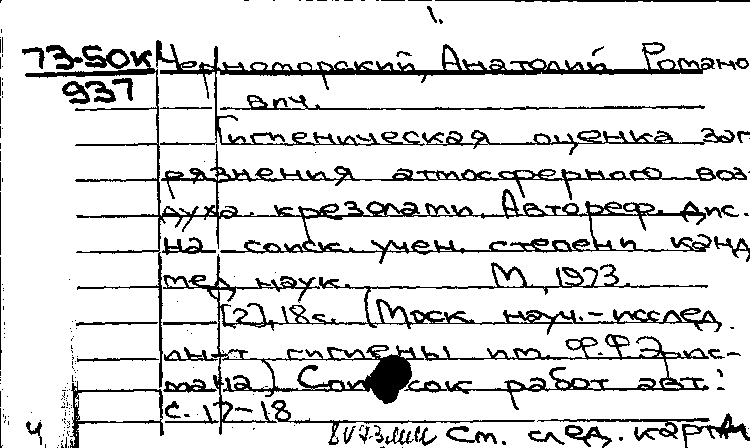 1.
73-50к Черноморский, Анатолий Романо-
937 вич.
Гигиеническая оценка заг-
рязнения атмосферного воз-
духа крезолами. Автореф. дис.
на соиск. учен. степени канд.
мед. наук. М., 1973.
[2], 18с. (Моск. науч.-исслед.
ин-т гигиены им. Ф.Ф.Эрис-
мана) Сп сок работ. авт.:
с. 17-18
Ч см. след. карт